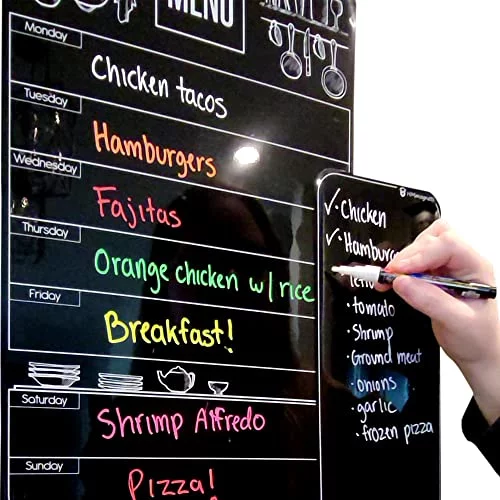 MENU
Monday
Chicken tacos
Tuesday
Hamburgers
Wednesday
Fajitas
Thursday
Orange chicken w/ rice
Friday
Breakfast!
Saturday
Shrimp Alfredo
Sunday
Pizza!
✓• Chicken
✓• Hamburge
• tomato
• Shrimp
• Ground meat
• onions
• garlic
• frozen pizza